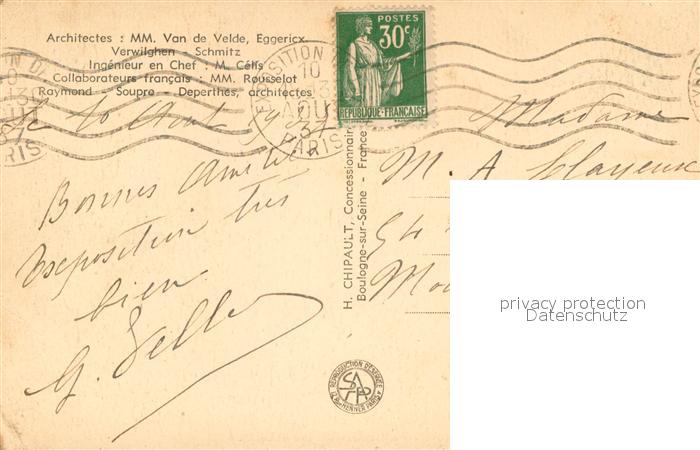 Architectes : MM. Van de Velde, Eggericx
Verwilghen - Schmitz
Ingénieur en Chef : M. Célis
Collaborateurs français : MM. Rousselot
Raymond - Soupre - Deperthes, architectes
POSTES
30c
REPUBLIQUE FRANÇAISE
EXPOSITION
10
13
AOU
37
PARIS
le 10 Aout 37
Bonnes Amitiés
Exposition très
bien
H. CHIPAULT, Concessionnaire
Boulogne-sur-Seine - France
Madame
M. A.
54
REPRODUCTION RÉSERVÉE
privacy protection
Datenschutz